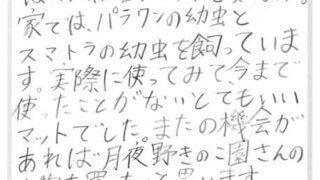 家では、パラワンの幼虫と
スマトラの幼虫を飼っていま
す。実際に使ってみて、今まで
使ったことがないとてもいい
マットでした。またの機会が
あれば月夜野きのこ園さんの
と思います